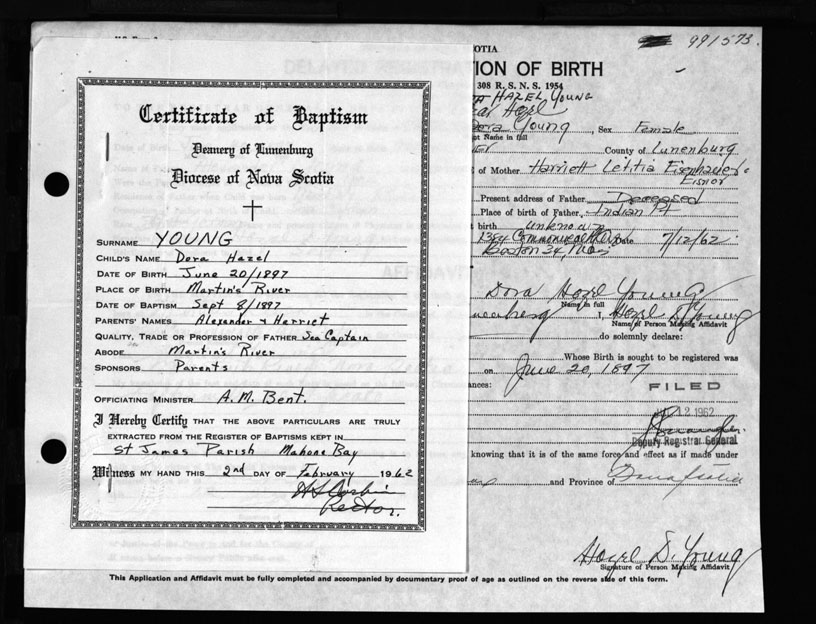 991573.
OTIA
ION OF BIRTH
308 R. S. N. S. 1954
HAZEL YOUNG
Hazel
Dora Young, Sex Female
Name in full
County of Lunenburg
of Mother Harriett Letitia Eisenhauer
Eisnor
Present address of Father Deceased
Place of birth of Father, Indian Pt
t birth unknown
1384 Commonwealth Ave Date 7/12/62
Boston 34, Mass
Dora Hazel Young
Name in full
I, Hazel D. Young
Name of Person Making Affidavit
do solemnly declare:
Whose Birth is sought to be registered was
on June 20, 1897
ances:
FILED
12 1962
Deputy Registrar General
knowing that it is of the same force and effect as if made under
and Province of Nova Scotia
Hazel D. Young
Signature of Person Making Affidavit
Certificate of Baptism
Deanery of Lunenburg
Diocese of Nova Scotia
SURNAME YOUNG
CHILD'S NAME Dora Hazel
DATE OF BIRTH June 20/1897
PLACE OF BIRTH Martin's River
DATE OF BAPTISM Sept 8/1897
PARENTS' NAMES Alexander & Harriet
QUALITY, TRADE OR PROFESSION OF FATHER Sea Captain
ABODE Martin's River
SPONSORS Parents
OFFICIATING MINISTER A. M. Bent.
I Hereby Certify THAT THE ABOVE PARTICULARS ARE TRULY
EXTRACTED FROM THE REGISTER OF BAPTISMS KEPT IN
St James Parish Mahone Bay
Witness MY HAND THIS 2nd DAY OF February 1962
Rector.
This Application and Affidavit must be fully completed and accompanied by documentary proof of age as outlined on the reverse side of this form.